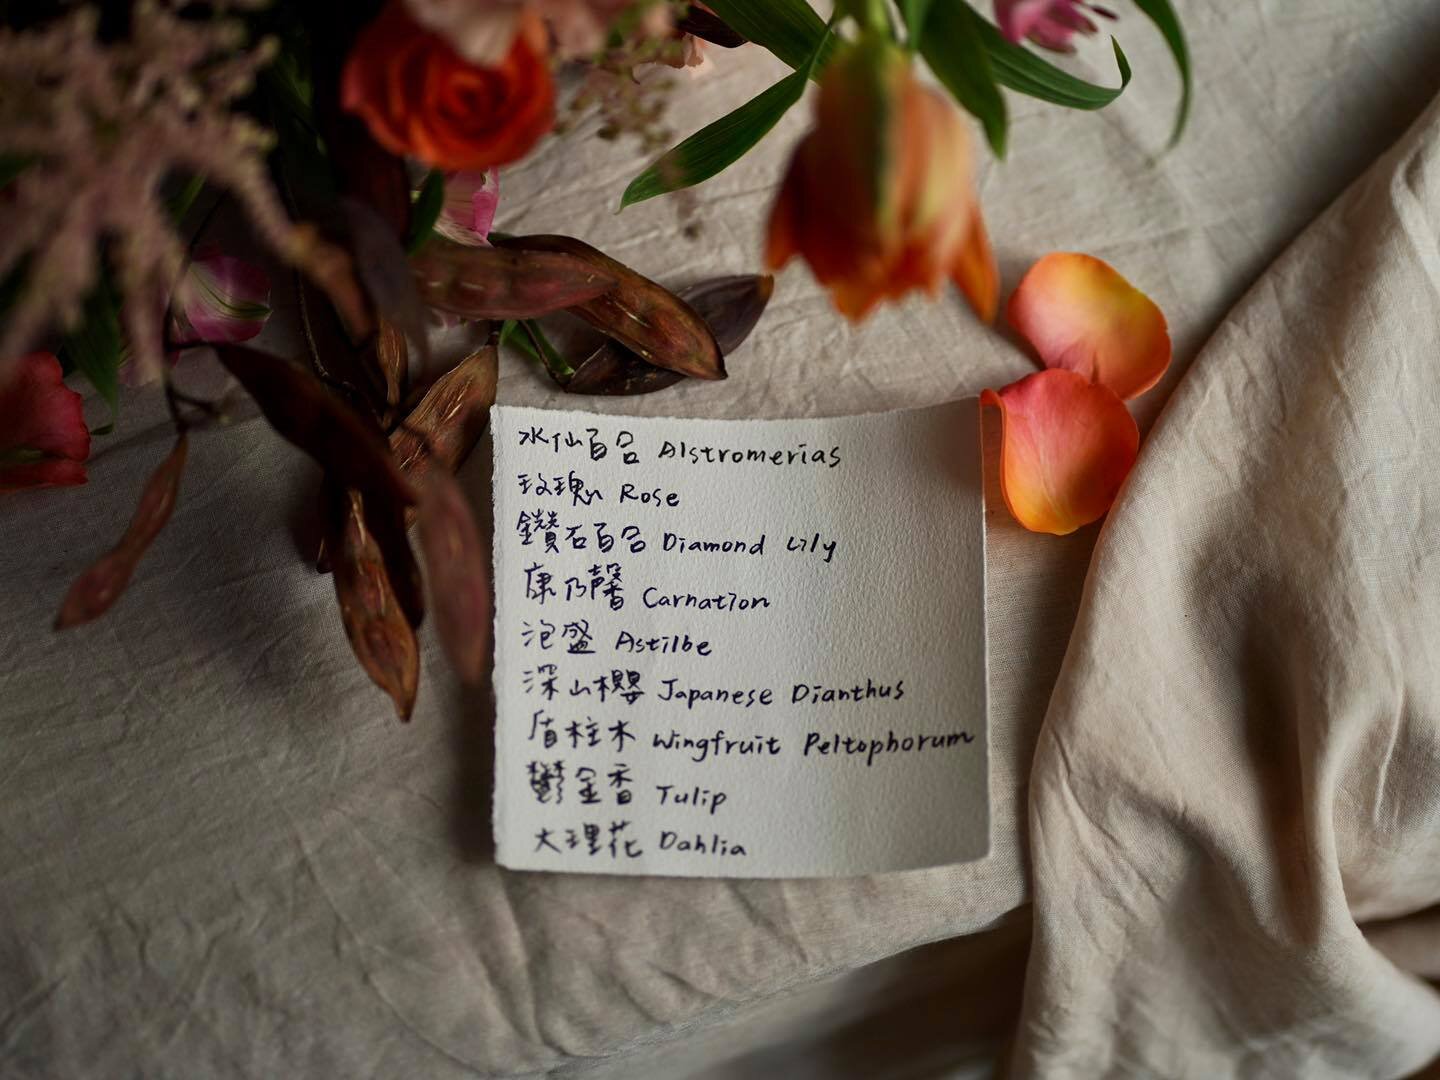 水仙百合 Alstromerias
玫瑰 Rose
鑽石百合 Diamond Lily
康乃馨 Carnation
泡盛 Astilbe
深山櫻 Japanese Dianthus
盾柱木 Wingfruit Peltophorum
鬱金香 Tulip
大理花 Dahlia